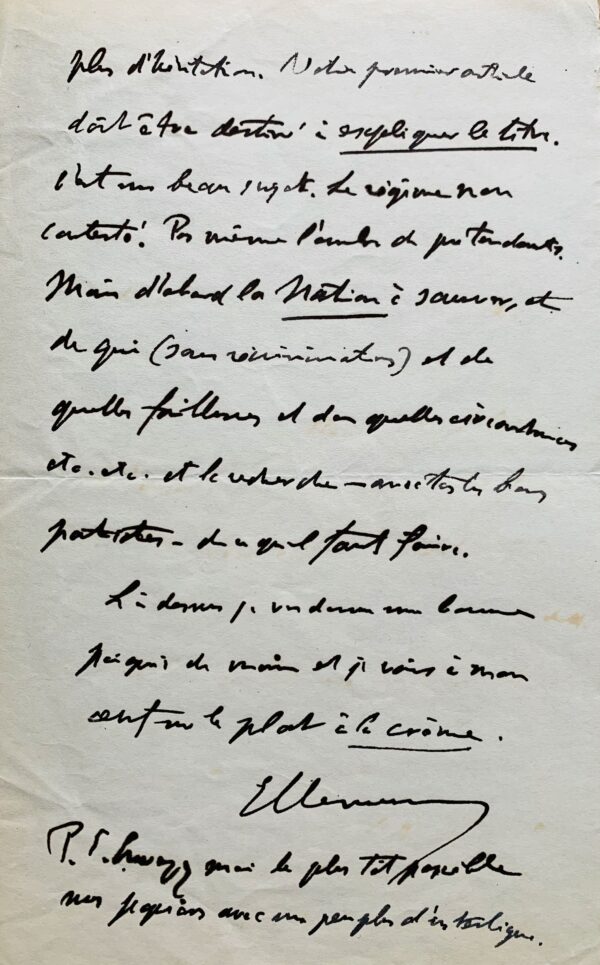 plus d'hésitation. Notre premier article
doit être destiné à expliquer le titre.
C'est un beau sujet. Le régime non
contesté. Pas même l'ombre de prétendants.
Mais d'abord la Nation à sauver, et
de qui (sans récriminations) et de
quelles faiblesses et dans quelles circonstances
etc. etc. et la recherche – avec tous les bons
patriotes – de ce qu'il faut faire.
Là dessus je vous donne une bonne
poignée de main et je vais à mon
œuf sur le plat à la crème.
P. S. Envoyez moi le plus tôt possible
nos papiers avec un peu plus d'interligne.